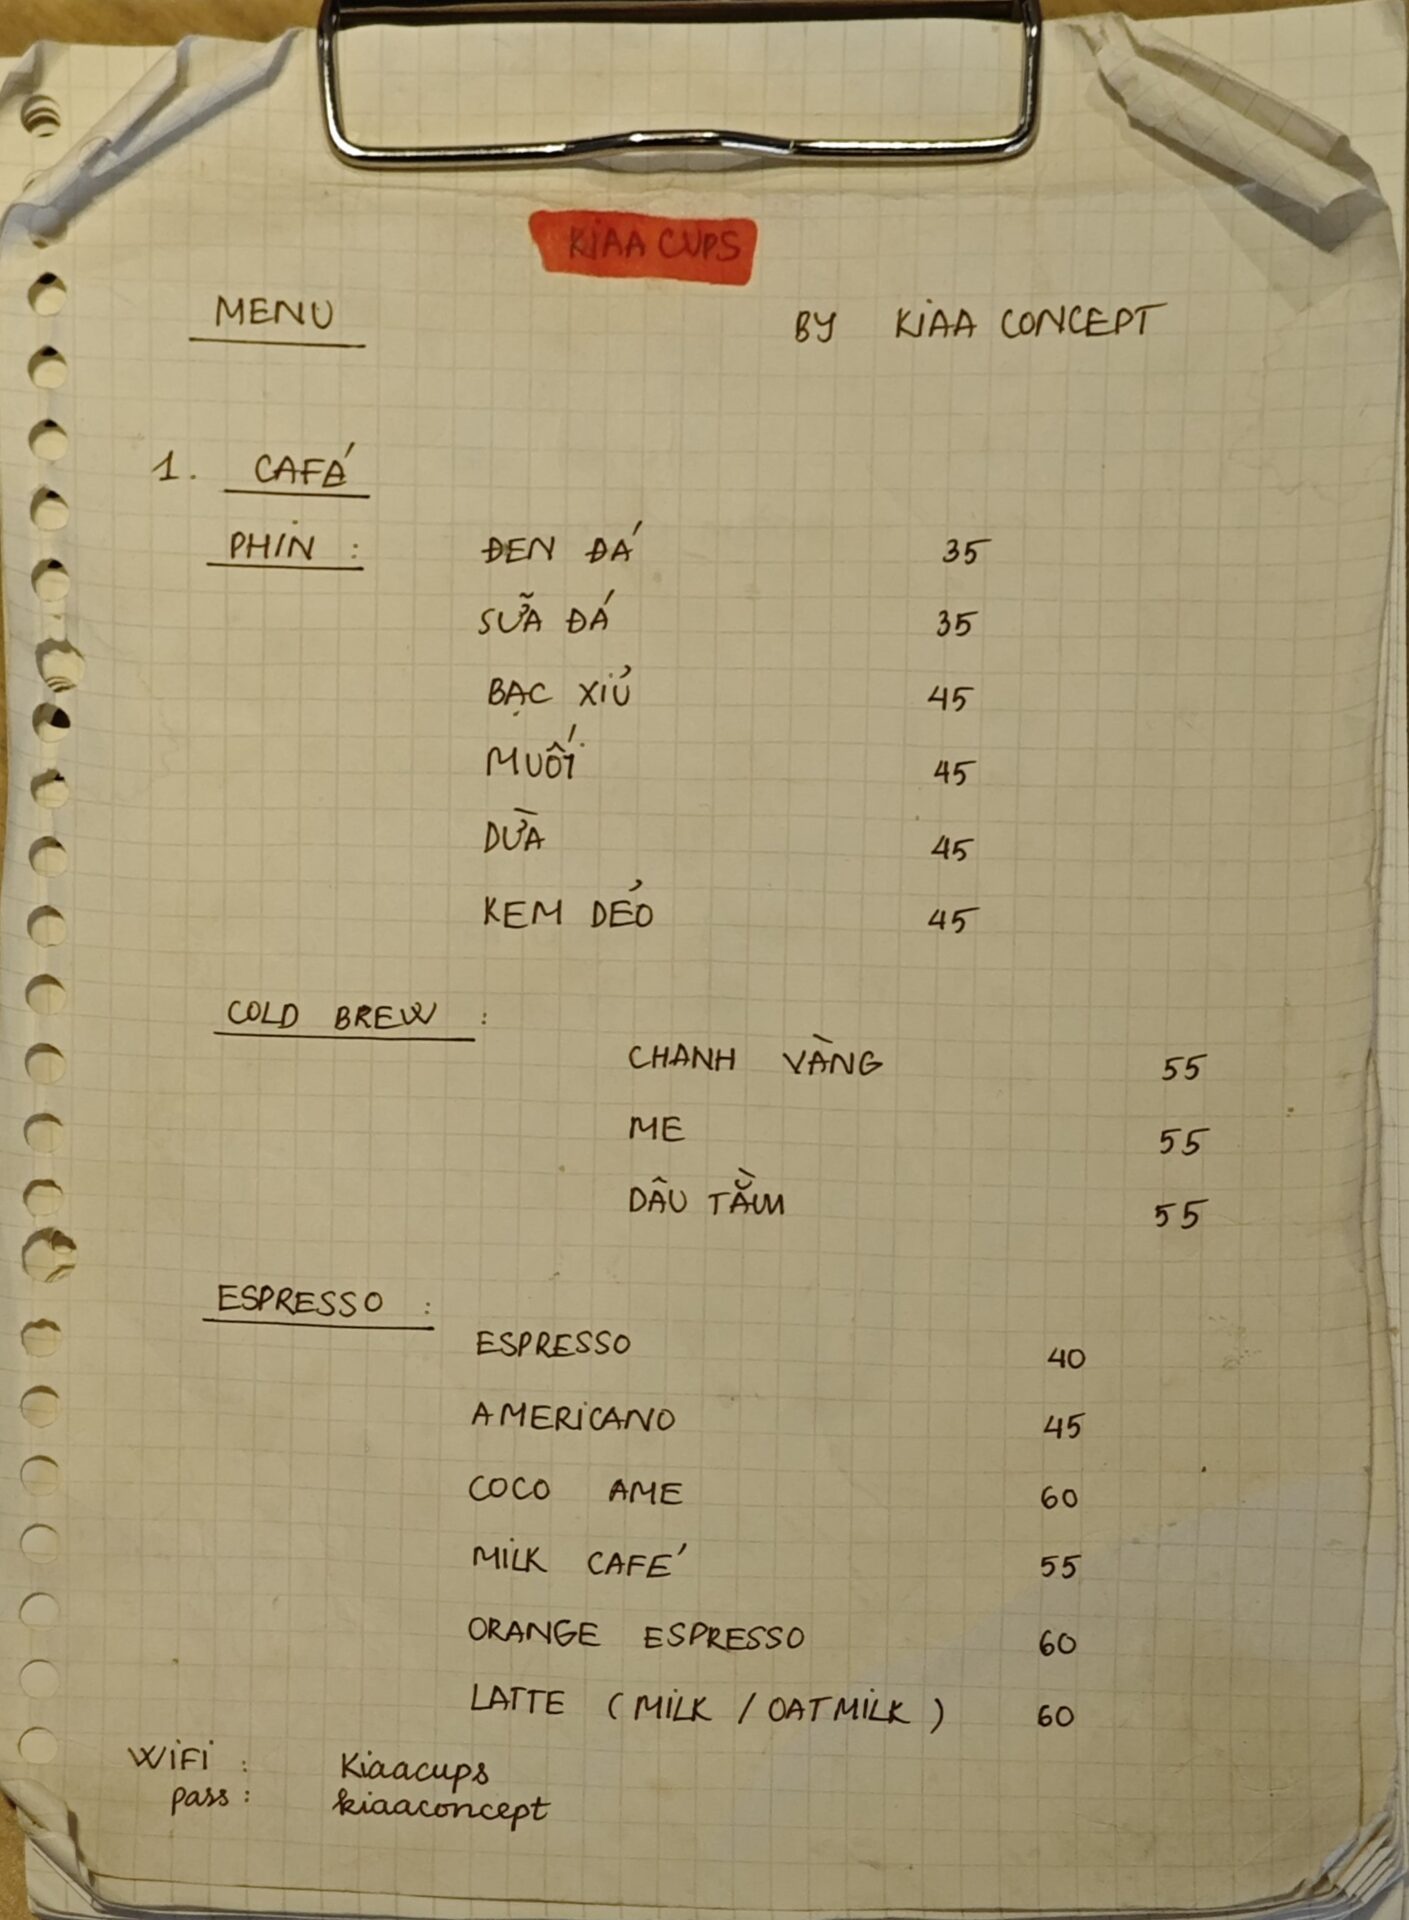 KIAA CUPS
MENU BY KIAA CONCEPT
1. CAFÁ
PHIN : ĐEN ĐÁ 35
SỮA ĐÁ 35
BẠC XỈU 45
MUỐI 45
DỪA 45
KEM DẺO 45
COLD BREW :
CHANH VÀNG 55
ME 55
DÂU TẰM 55
ESPRESSO :
ESPRESSO 40
AMERICANO 45
COCO AME 60
MILK CAFÉ 55
ORANGE ESPRESSO 60
LATTE ( MILK / OATMILK ) 60
WIFI : Kiaacups
pass : kiaaconcept